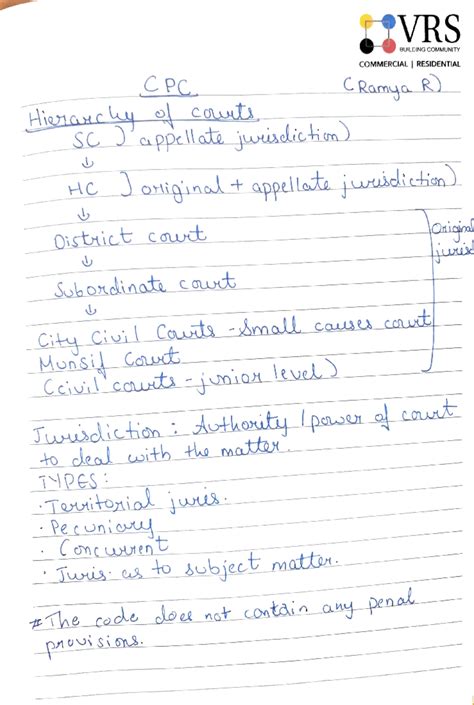 VRS
BUILDING COMMUNITY
COMMERCIAL | RESIDENTIAL
CPC (Ramya R)
Hierarchy of courts
SC ) appellate jurisdiction)
↓
HC ) original + appellate jurisdiction)
↓
District court
↓
Subordinate court
↓
City Civil Courts - Small causes court
Munsif Court
(civil courts - junior level)
Original
jurisd
Jurisdiction : Authority / power of court
to deal with the matter.
TYPES :
· Territorial juris.
· Pecuniary
· Concurrent
· Juris. as to subject matter.
# The code does not contain any penal
provisions.